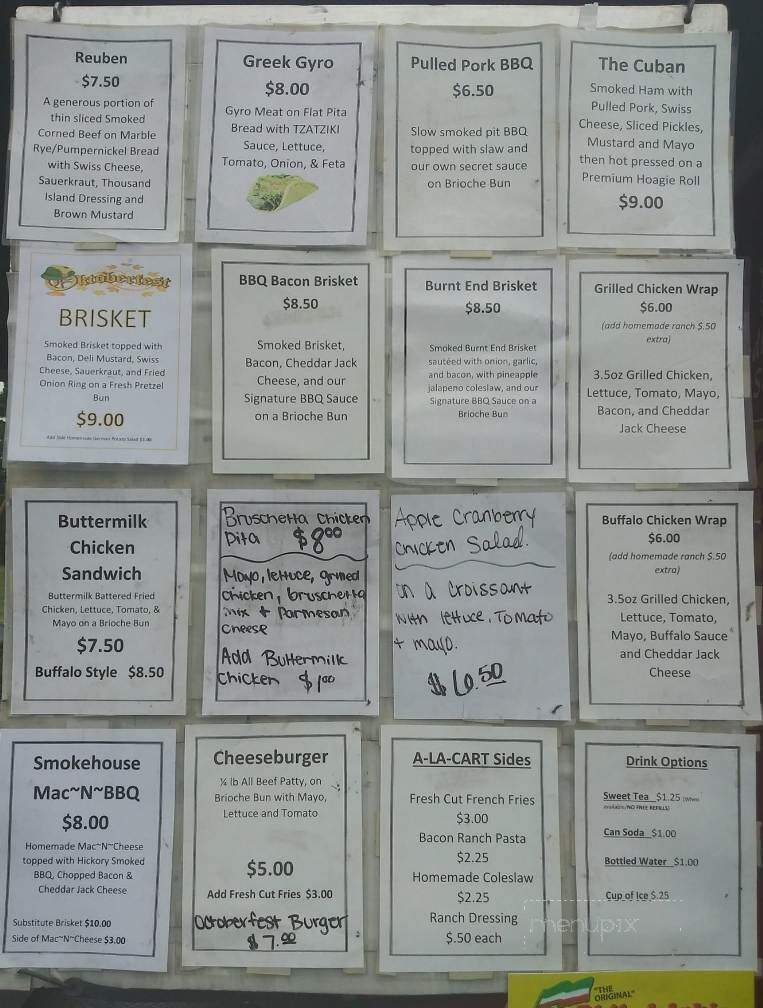 Reuben
$7.50
A generous portion of
thin sliced Smoked
Corned Beef on Marble
Rye/Pumpernickel Bread
with Swiss Cheese,
Sauerkraut, Thousand
Island Dressing and
Brown Mustard
Greek Gyro
$8.00
Gyro Meat on Flat Pita
Bread with TZATZIKI
Sauce, Lettuce,
Tomato, Onion, & Feta
Pulled Pork BBQ
$6.50
Slow smoked pit BBQ
topped with slaw and
our own secret sauce
on Brioche Bun
The Cuban
Smoked Ham with
Pulled Pork, Swiss
Cheese, Sliced Pickles,
Mustard and Mayo
then hot pressed on a
Premium Hoagie Roll
$9.00
Oktoberfest
BRISKET
Smoked Brisket topped with
Bacon, Deli Mustard, Swiss
Cheese, Sauerkraut, and Fried
Onion Ring on a Fresh Pretzel
Bun
$9.00
Add Side Homemade German Potato Salad
BBQ Bacon Brisket
$8.50
Smoked Brisket,
Bacon, Cheddar Jack
Cheese, and our
Signature BBQ Sauce
on a Brioche Bun
Burnt End Brisket
$8.50
Smoked Burnt End Brisket
sautéed with onion, garlic,
and bacon, with pineapple
jalapeno coleslaw, and our
Signature BBQ Sauce on a
Brioche Bun
Grilled Chicken Wrap
$6.00
(add homemade ranch $.50
extra)
3.5oz Grilled Chicken,
Lettuce, Tomato, Mayo,
Bacon, and Cheddar
Jack Cheese
Buttermilk
Chicken
Sandwich
Buttermilk Battered Fried
Chicken, Lettuce, Tomato, &
Mayo on a Brioche Bun
$7.50
Buffalo Style $8.50
Bruschetta Chicken
Pita $8.00
Mayo, lettuce, grilled
chicken, bruschetta
mix + Parmesan
cheese
Add Buttermilk
Chicken $1.00
Apple Cranberry
Chicken Salad.
on a Croissant
with lettuce, Tomato
+ mayo.
$6.50
Buffalo Chicken Wrap
$6.00
(add homemade ranch $.50
extra)
3.5oz Grilled Chicken,
Lettuce, Tomato,
Mayo, Buffalo Sauce
and Cheddar Jack
Cheese
Smokehouse
Mac~N~BBQ
$8.00
Homemade Mac~N~Cheese
topped with Hickory Smoked
BBQ, Chopped Bacon &
Cheddar Jack Cheese
Substitute Brisket $10.00
Side of Mac~N~Cheese $3.00
Cheeseburger
¼ lb All Beef Patty, on
Brioche Bun with Mayo,
Lettuce and Tomato
$5.00
Add Fresh Cut Fries $3.00
Octoberfest Burger
$7.00
A-LA-CART Sides
Fresh Cut French Fries
$3.00
Bacon Ranch Pasta
$2.25
Homemade Coleslaw
$2.25
Ranch Dressing
$.50 each
Drink Options
Sweet Tea $1.25 (When
available/NO FREE REFILLS)
Can Soda $1.00
Bottled Water $1.00
Cup of Ice $.25
menupix
"THE
ORIGINAL"